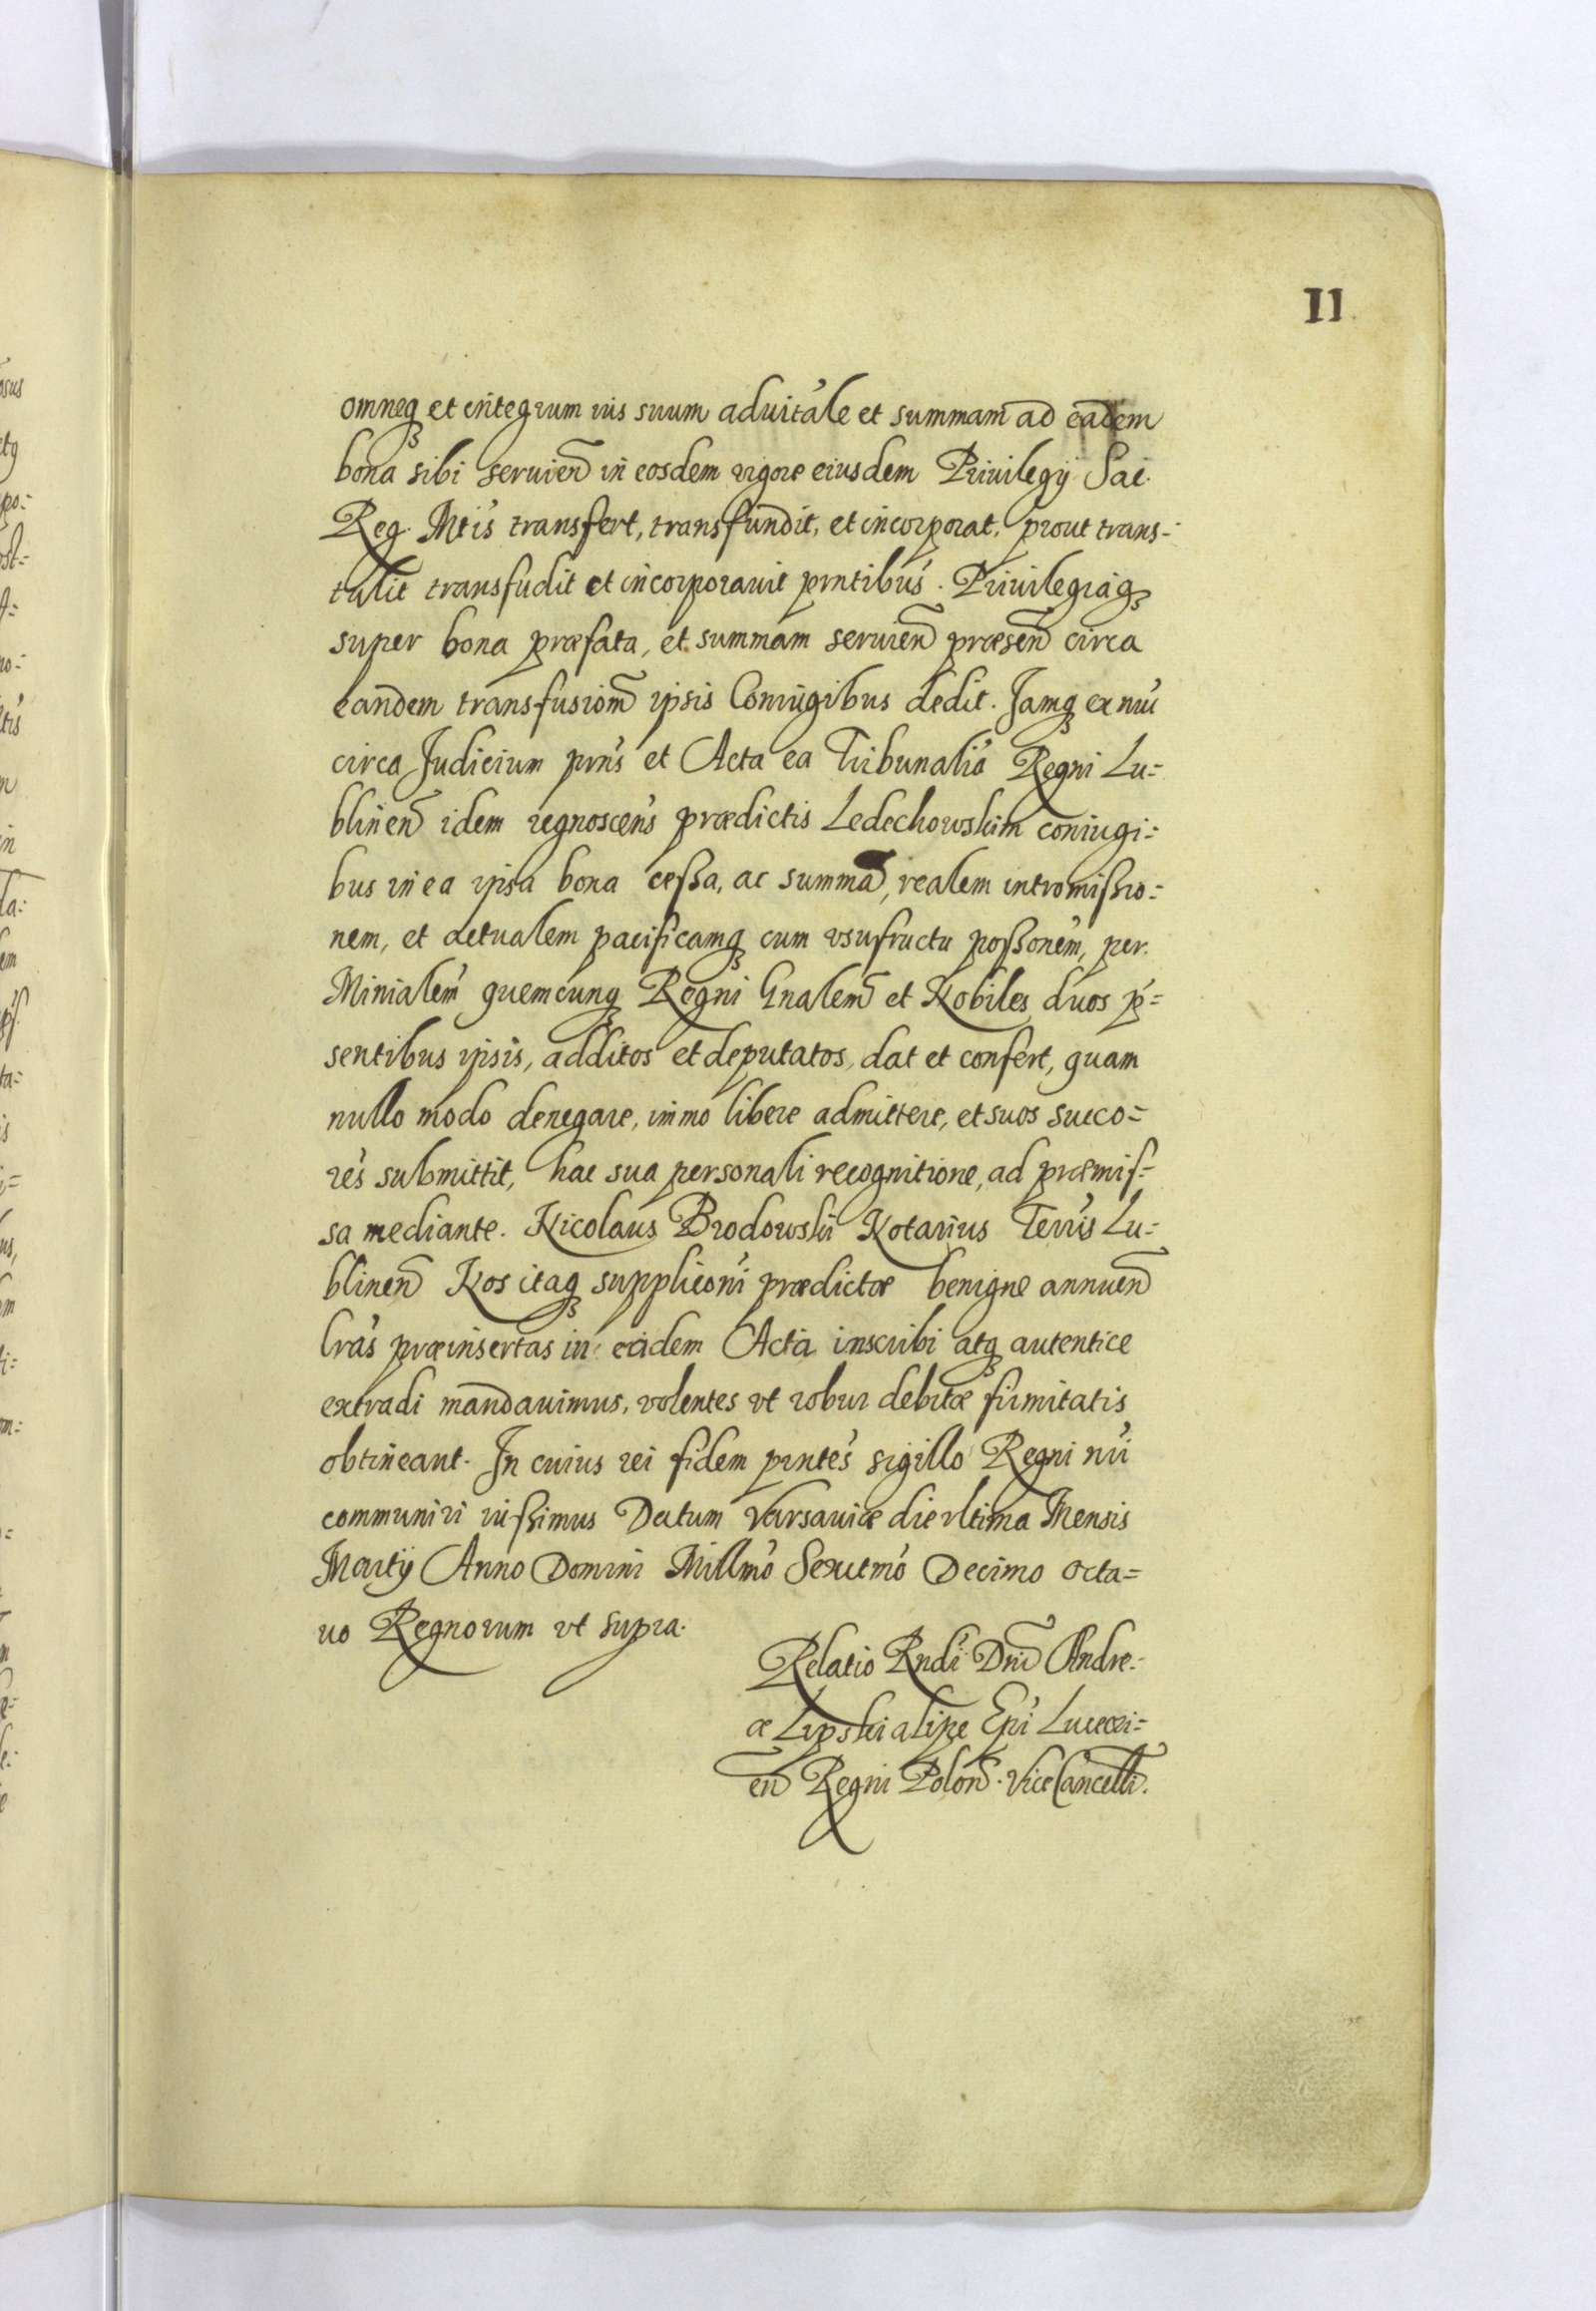 II
omneq et integrum ius suum aduitale et summam ad eadem
bona sibi seruien in eosdem vigore eiusdem Priuilegij Sac.
Reg. Mtis transfert, transfundit, et incorporat, prout trans=
tulit transfudit et incorporauit prntibus. Priuilegiaq
super bona præfata, et summam seruien præsen circa
eandem transfusiom ipsis Coniugibus dedit. Jamq ex nu
circa Judicium prns et Acta ea Tribunalia Regni Lu=
blinen idem regnoscens prædictis Ledechowskim coniugi=
bus in ea ipsa bona cessa, ac summa, realem intromissio=
nem, et actualem pacificamq cum vsufructu possonem, per
Minialem quemcunq Regni Gnalem et Nobiles duos p=
sentibus ipsis, additos et deputatos, dat et confert, quam
nullo modo denegare, immo libere admittere, et suos succo=
res submittit, hac sua personali recognitione, ad præmis=
sa mediante. Nicolaus Brodowski Notarius Terris Lu=
blinen Nos itaq suppliconi prædictæ benigne annuen
lras præinsertas in eadem Acta inscribi atq autentice
extradi mandauimus, volentes vt robur debitæ firmitatis
obtineant. In cuius rei fidem prntes sigillo Regni nri
communiri iussimus Datum Varsauiæ die vltima Mensis
Martij Anno Domini Millmo Sexctmo Decimo octa=
uo Regnorum vt supra.
Relatio Rndi Dni Andre=
æ Lipski a lipe Epi Luceori=
en Regni Polon. ViceCancelli.